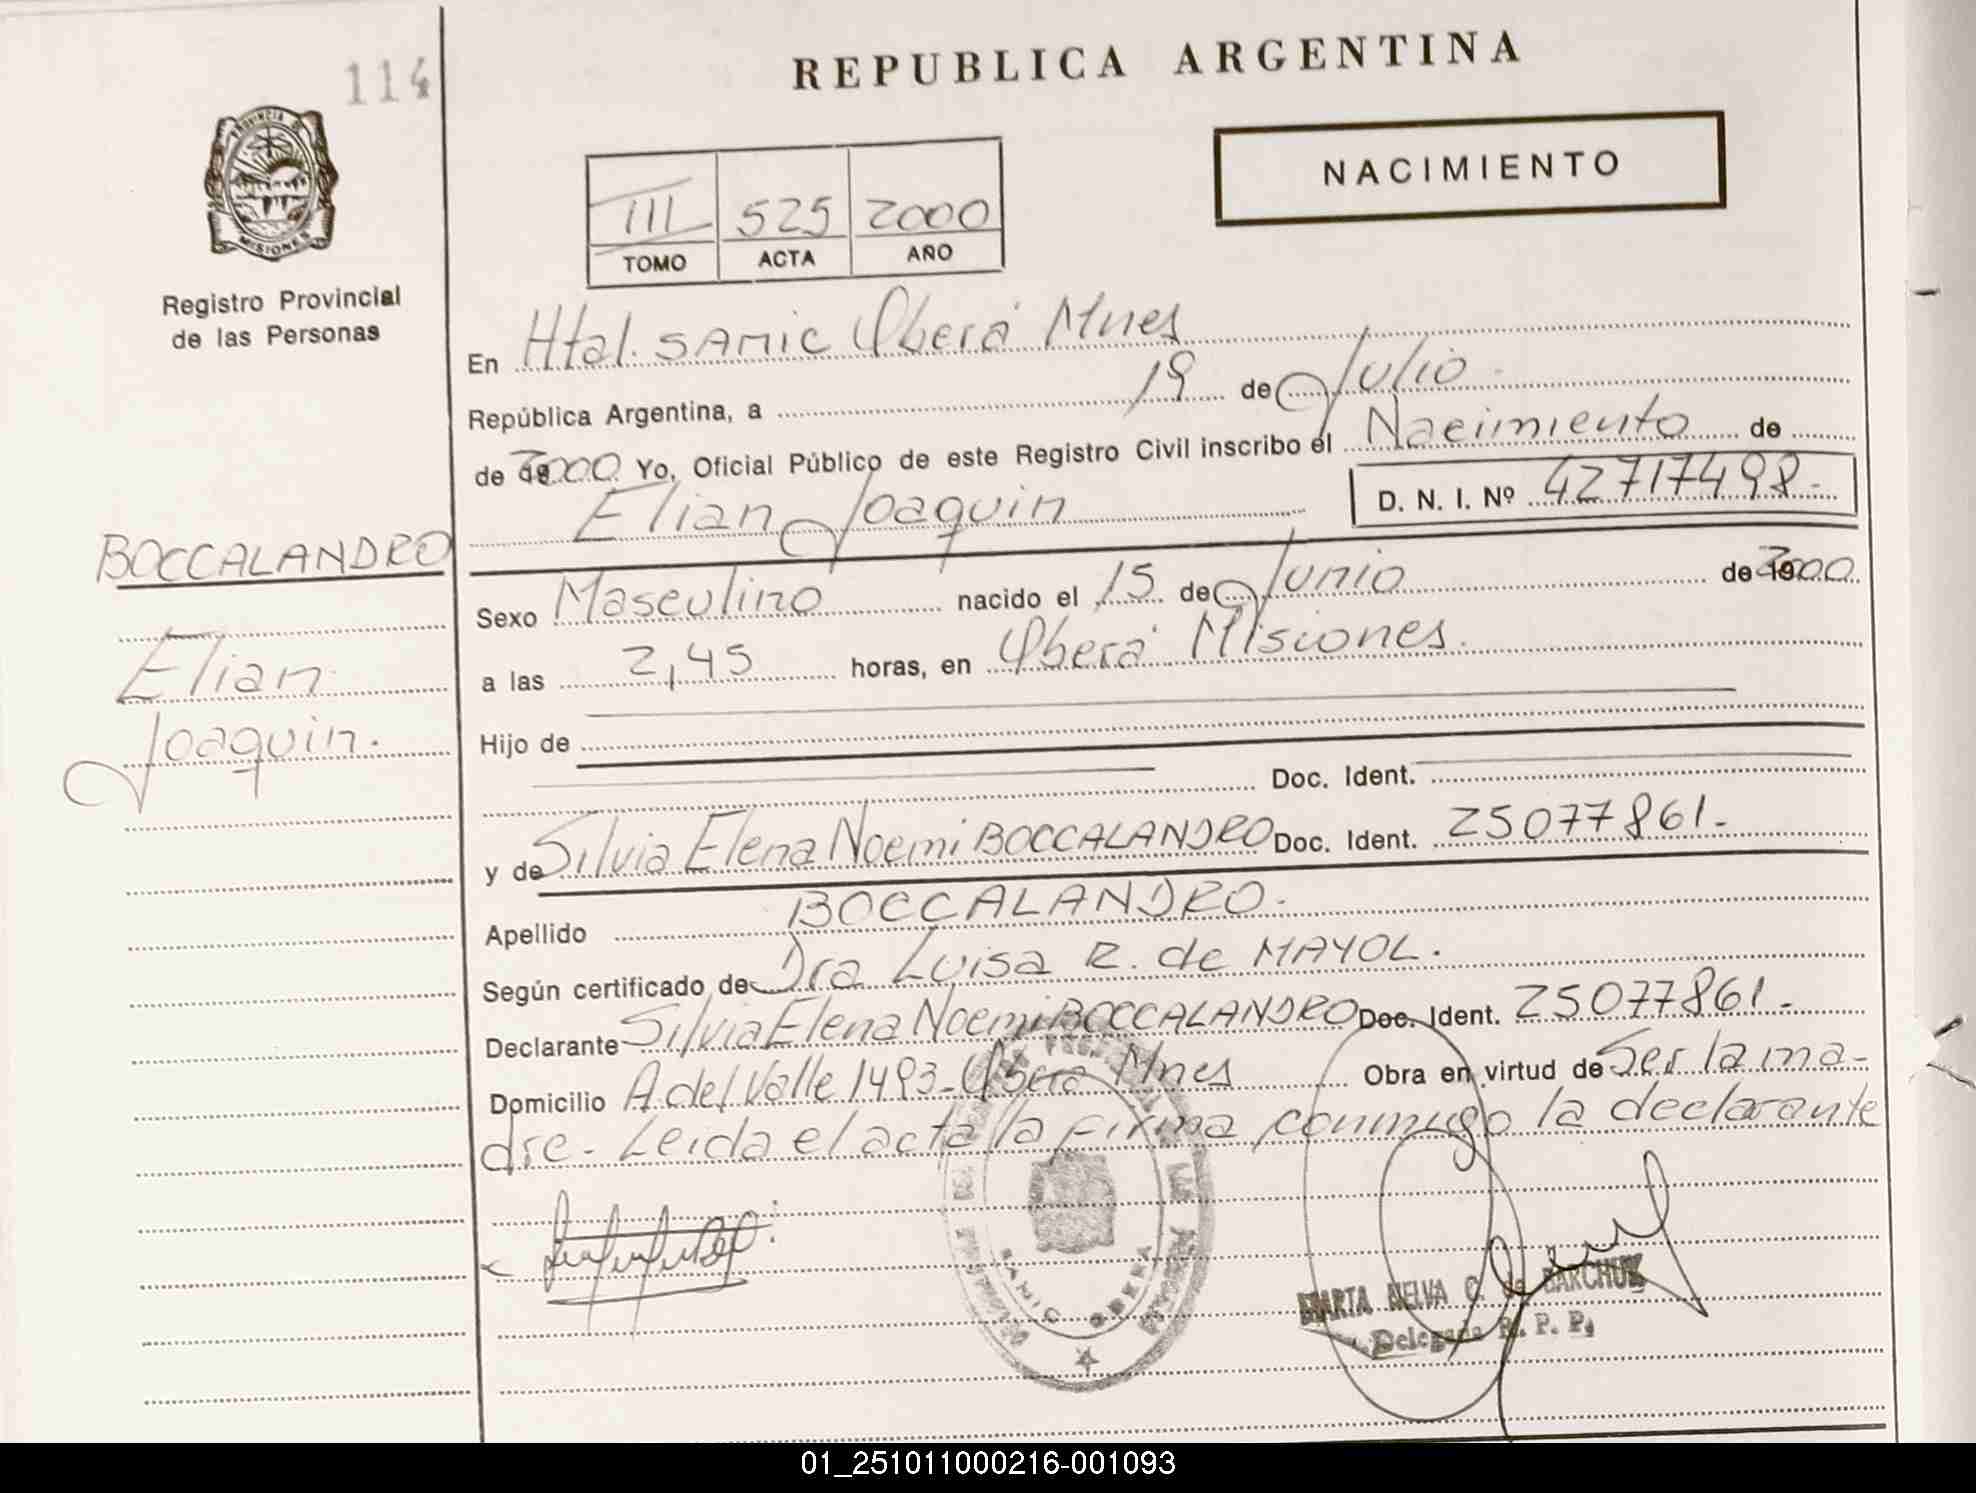 114
PROVINCIA DE
MISIONES
Registro Provincial
de las Personas
REPUBLICA ARGENTINA
NACIMIENTO
III 525 2000
TOMO ACTA AÑO
En Htal. SAMIC Oberá Mnes
República Argentina, a 19 de Julio
de 2000 Yo, Oficial Público de este Registro Civil inscribo el Nacimiento de
Elian Joaquin D. N. I. Nº 42717498.-
BOCCALANDRO
Elian
Joaquin.
Sexo Masculino nacido el 15 de Junio de 2000
a las 2,45 horas, en Oberá Misiones.
Hijo de
Doc. Ident.
y de Silvia Elena Noemi BOCCALANDRO Doc. Ident. 25077861.-
Apellido BOCCALANDRO.
Según certificado de Dra Luisa R. de MAYOL.
Declarante Silvia Elena Noemi BOCCALANDRO Doc. Ident. 25077861.-
Domicilio A. del Valle 1493-Oberá Mnes Obra en virtud de Ser la ma-
dre.- Leida el acta la firma conmigo la declarante
SAMIC OBERA
MARTA NELVA C. de BARCHUK
Delegada R. P. P.
01_251011000216-001093